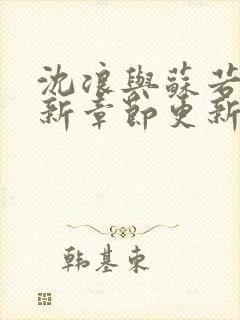 沈浪與蘇若
新章節更新
韩基东